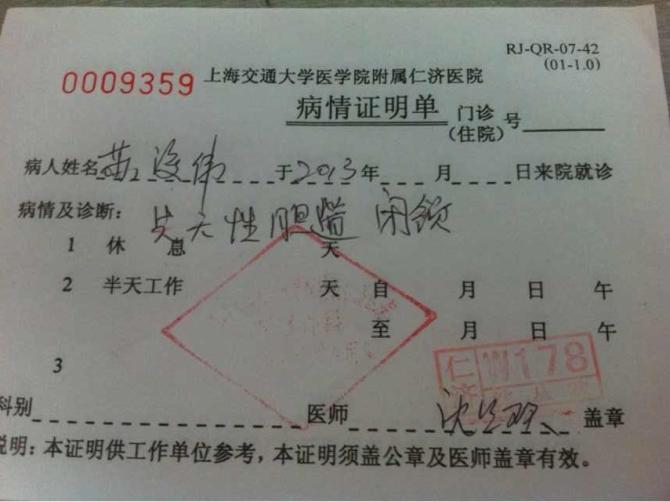 RJ-QR-07-42
(01-1.0)
0009359 上海交通大学医学院附属仁济医院
病情证明单 门诊(住院)号
病人姓名 伟 于2013年 月 日来院就诊
病情及诊断: 先天性胆道闭锁
1 休息 天
2 半天工作 天 自 月 日 午
至 月 日 午
3
仁济 W178
科别 医师 沈 盖章
说明:本证明供工作单位参考,本证明须盖公章及医师盖章有效。